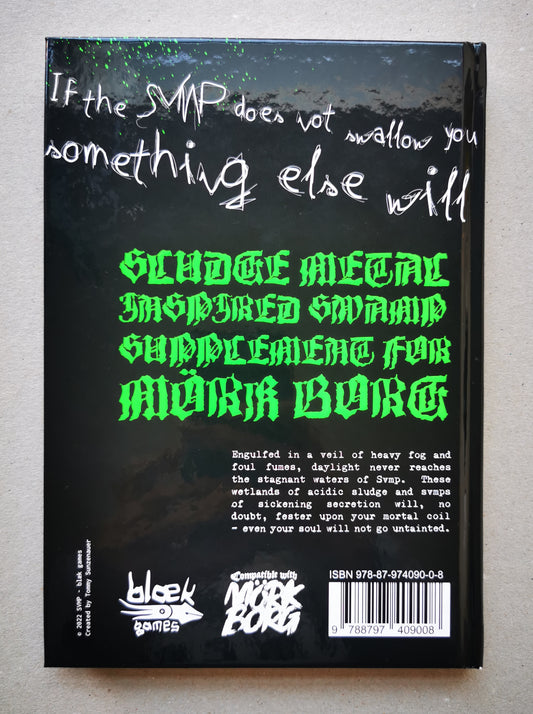 If the SVMP does not swallow you
something else will
SLUDGE METAL
INSPIRED SWAMP
SUPPLEMENT FOR
MÖRK BORG
Engulfed in a veil of heavy fog and
foul fumes, daylight never reaches
the stagnant waters of Svmp. These
wetlands of acidic sludge and svmps
of sickening secretion will, no
doubt, fester upon your mortal coil
– even your soul will not go untainted.
© 2022 SVMP - blæk games
Created by Tommy Sunzenauer
blæk
games
Compatible with
MÖRK
BORG
ISBN 978-87-974090-0-8
9 788797 409008